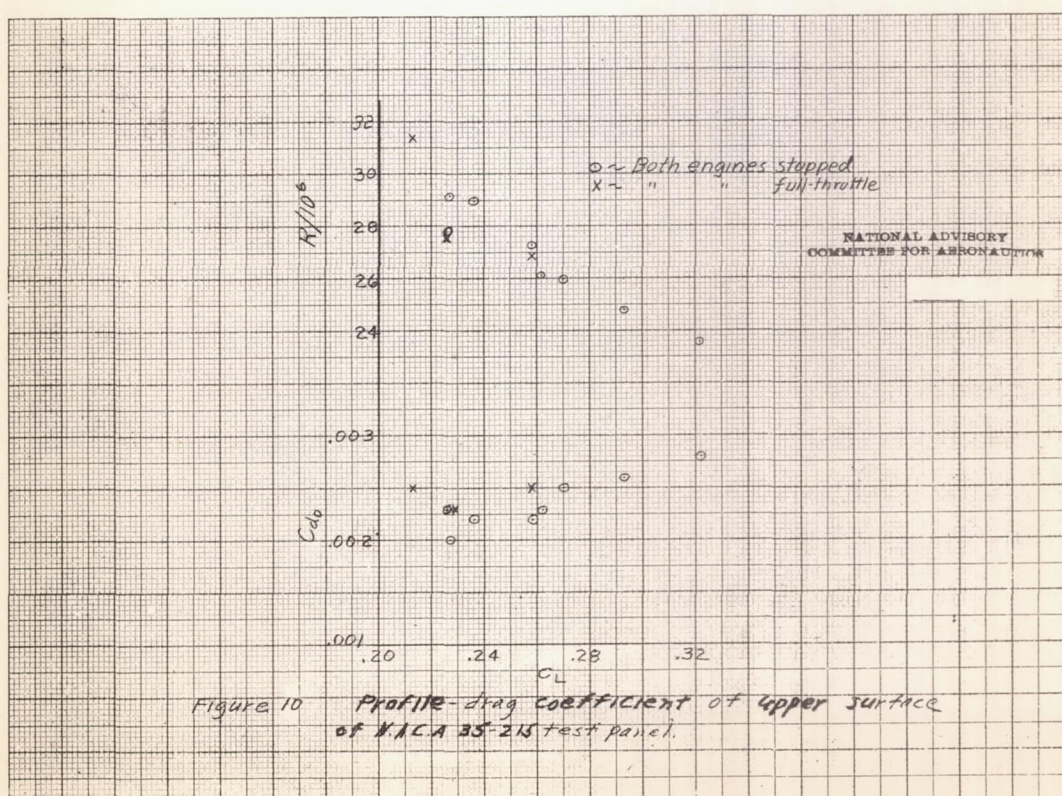 32
30
28
26
24
R/10⁶
o ~ Both engines stopped
x ~ " " full-throttle
NATIONAL ADVISORY
COMMITTEE FOR AERONAUTICS
.003
.002
.001
Cd₀
.20 .24 .28 .32
CL
Figure 10 Profile-drag coefficient of upper surface
of N.A.C.A 35-215 test panel.